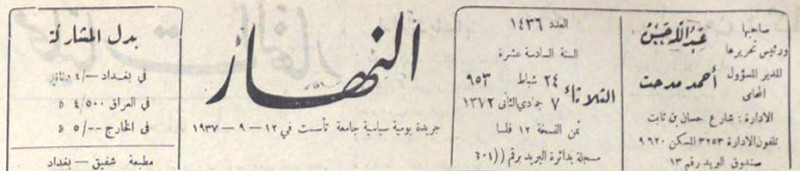 صاحبها
ورئيس تحريرها
عبد الله حسن
المدير المسؤول
احمد مدحت
المحامي
الادارة : شارع حسان بن ثابت
تلفون الادارة ٣٢٥٣ المسكن ٩٦٢٠
صندوق البريد رقم ١٣
العدد ١٤٣٦
السنة السادسة عشرة
الثلاثاء
٢٤ شباط ٩٥٣
٧ جمادي الثاني ١٣٧٢
ثمن النسخة ١٢ فلسا
مسجلة بدائرة البريد برقم ((٤٠١
النهار
جريدة يومية سياسية جامعة تأسست في ١٢ – ٩ – ١٩٣٧
بدل المشاركة
في بغداد –/٤ دنانير
في العراق ٤/٥٠٠ »
في الخارج –/٥ »
مطبعة شفيق – بغداد